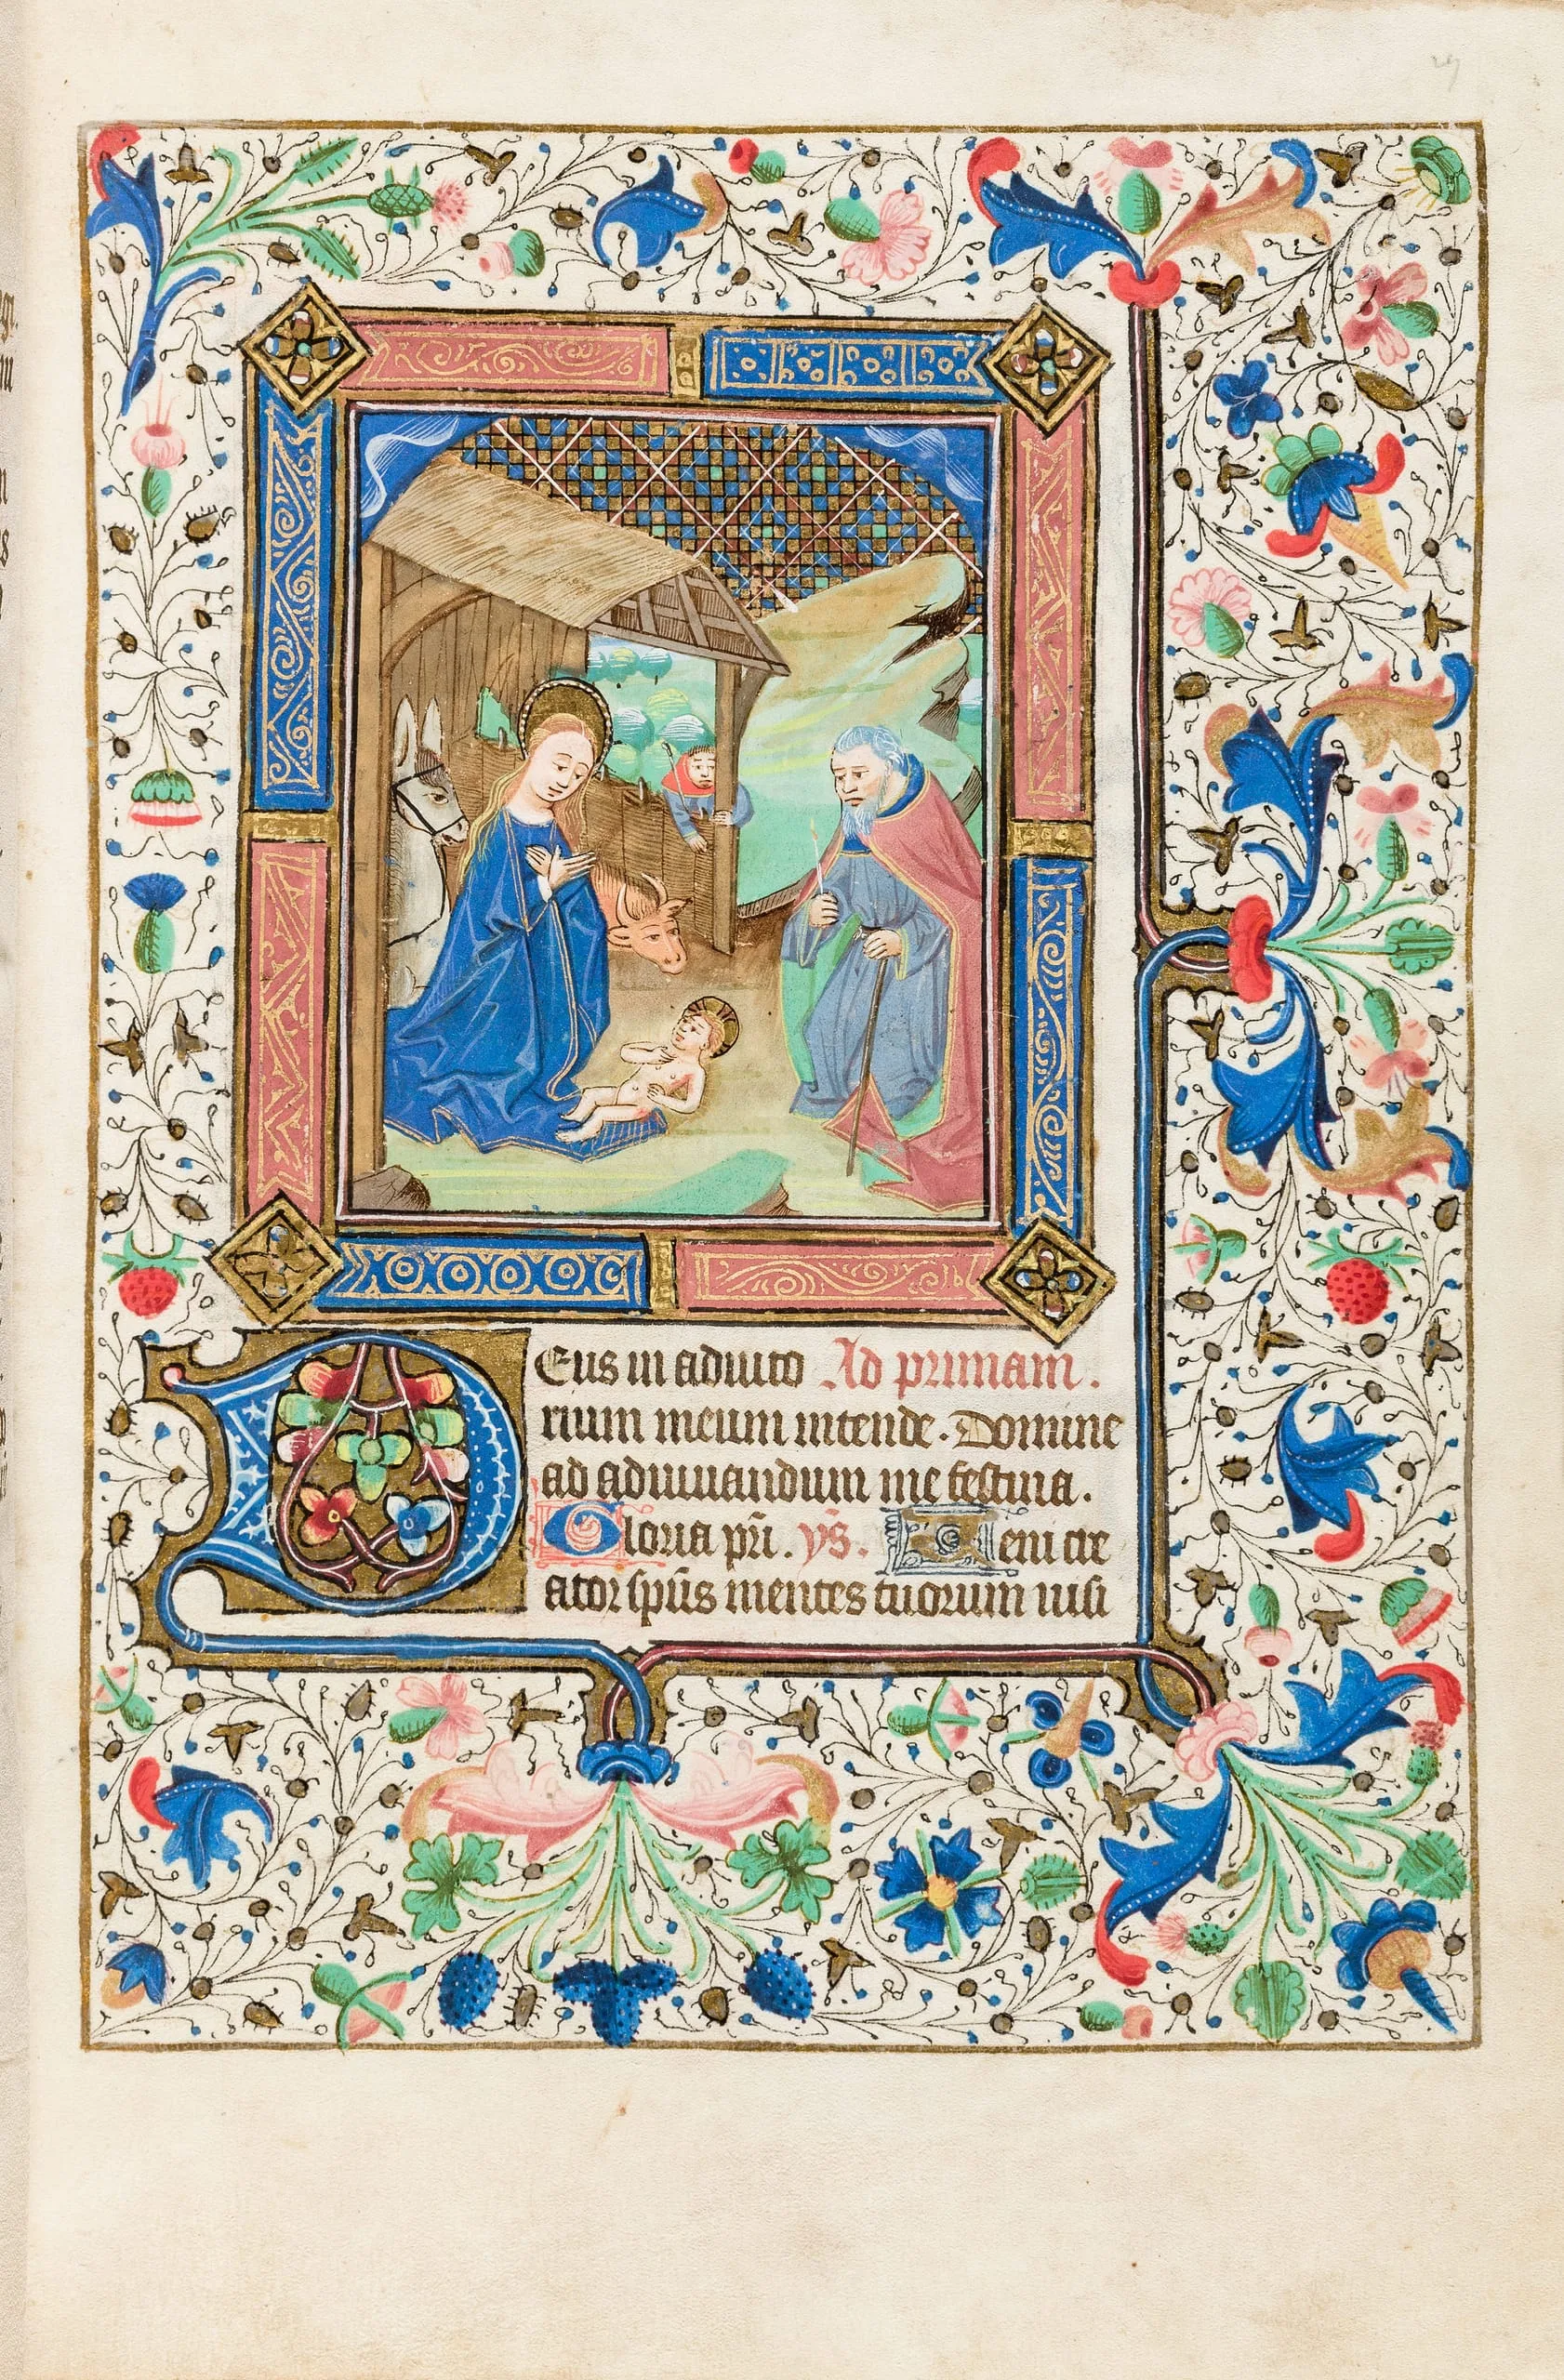 Deus in adiuto Ad primam.
rium meum intende. Domine
ad adiuuandum me festina.
Gloria pri. vs. Veni cre
ator spus mentes tuorum uisi